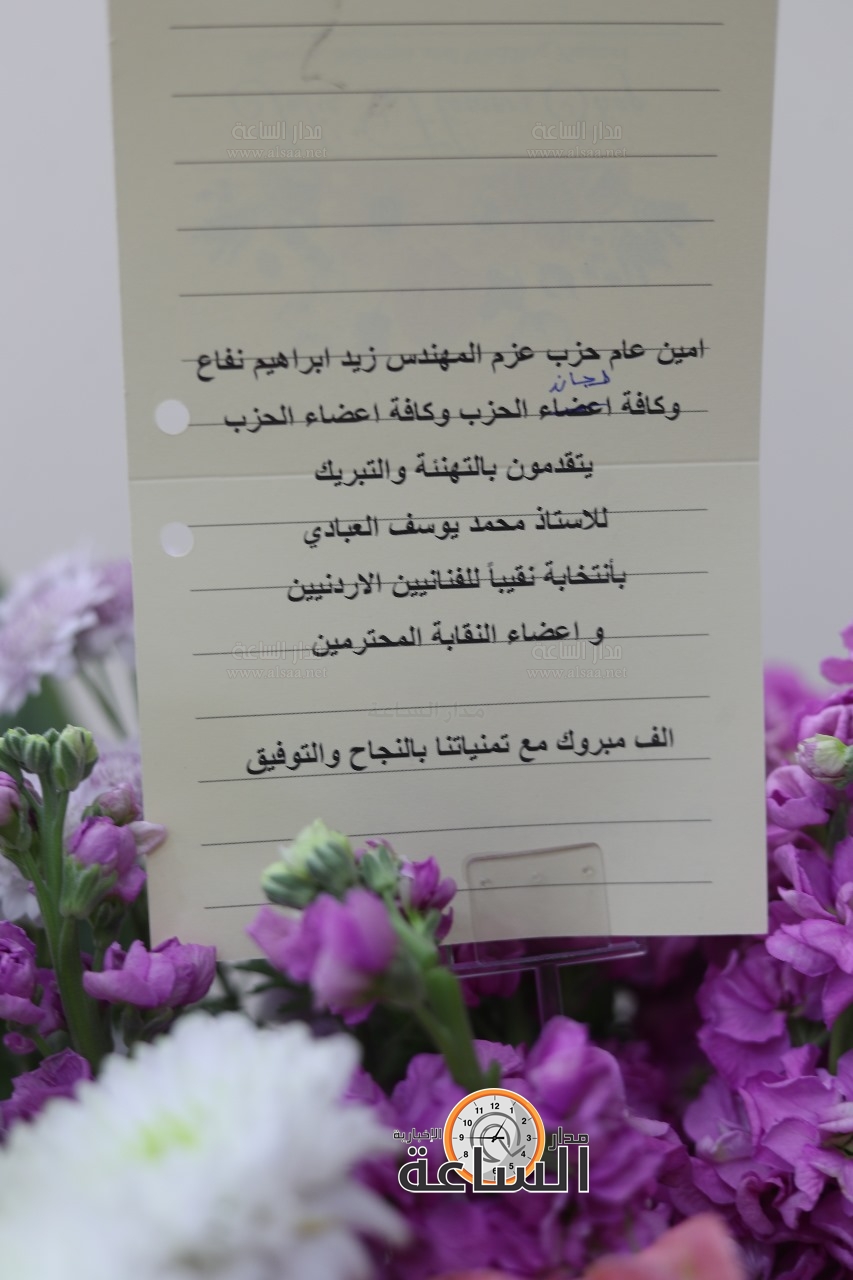 مدار الساعة مدار الساعة
www.alsaa.net www.alsaa.net
امين عام حزب عزم المهندس زيد ابراهيم نفاع
لجان
وكافة اعضاء الحزب وكافة اعضاء الحزب
يتقدمون بالتهنئة والتبريك
للاستاذ محمد يوسف العبادي
بأنتخابة نقيباً للفنانيين الاردنيين
و اعضاء النقابة المحترمين
مدار الساعة مدار الساعة
www.alsaa.net www.alsaa.net
مدار الساعة
الف مبروك مع تمنياتنا بالنجاح والتوفيق
مدار الساعة الإخبارية
12 1 2 3 4 5 6 8 9 10 11